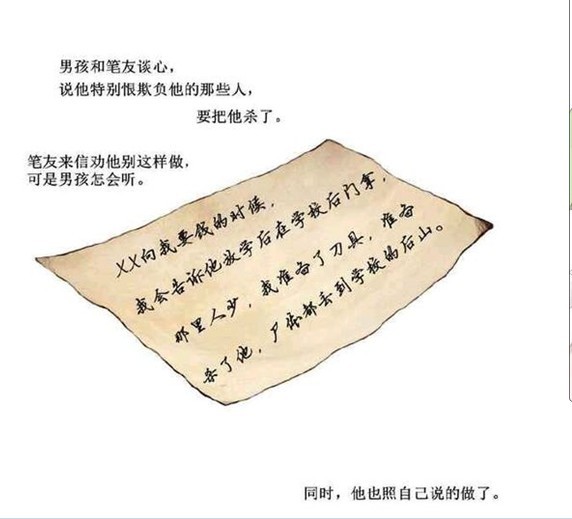 男孩和笔友谈心，
说他特别恨欺负他的那些人，
要把他杀了。
笔友来信劝他别这样做，
可是男孩怎会听。
XX向我要钱的时候，
我会告诉他放学后在学校后门拿，
那里人少，我准备了刀具，准备
杀了他，尸体都丢到学校的后山。
同时，他也照自己说的做了。